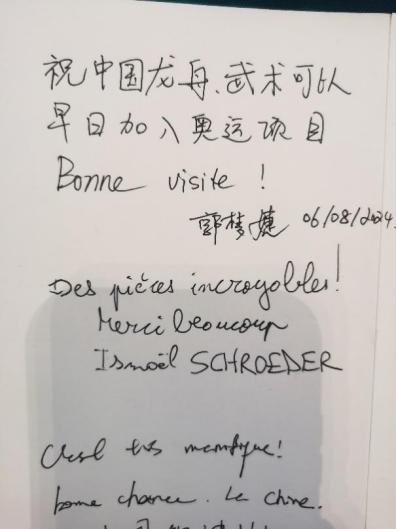 祝中国龙舟、武术可以
早日加入奥运项目
Bonne visite !
郭梦婕 06/08/2024
Des pièces incroyables!
Merci beaucoup
Ismaël SCHROEDER
C'est très !
bonne chance. La Chine.